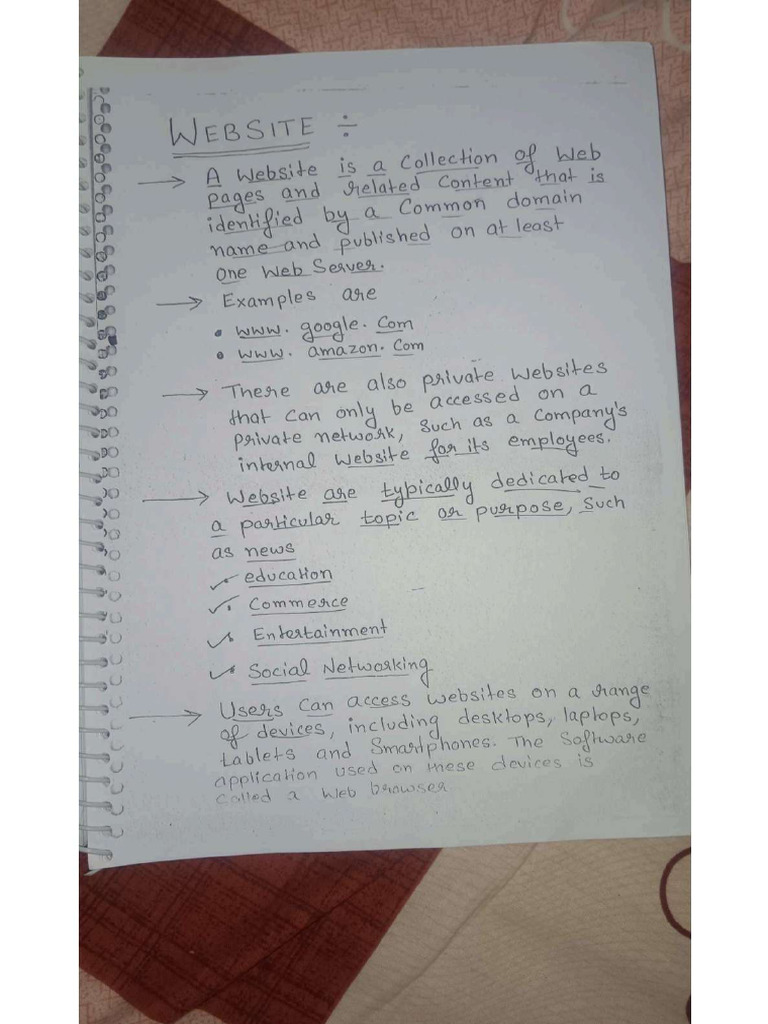 WEBSITE ÷
→ A Website is a Collection of Web
pages and related Content that is
identified by a Common domain
name and published on at least
one Web Server.
→ Examples are
• www. google. Com
• www. amazon. Com
→ There are also private websites
that can only be accessed on a
private network, such as a Company's
internal Website for its employees.
→ Website are typically dedicated to
a particular topic or purpose, Such
as news
✓ education
✓ Commerce
✓ Entertainment
✓ Social Networking
→ Users Can access websites on a range
of devices, including desktops, laptops,
tablets and Smartphones. The Software
application used on these devices is
Called a Web browser